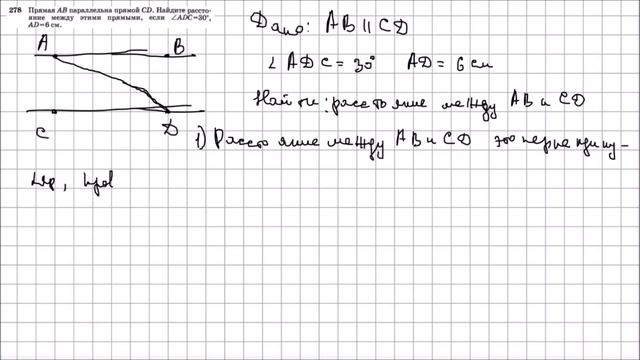 278 Прямая AB параллельна прямой CD. Найдите рассто-
яние между этими прямыми, если ∠ADC=30°,
AD=6 см.
Дано: AB || CD
∠ADC = 30° AD = 6 см
Найти: расстояние между AB и CD
A B
C D
1) Расстояние между AB и CD это перпендику-
ляр,